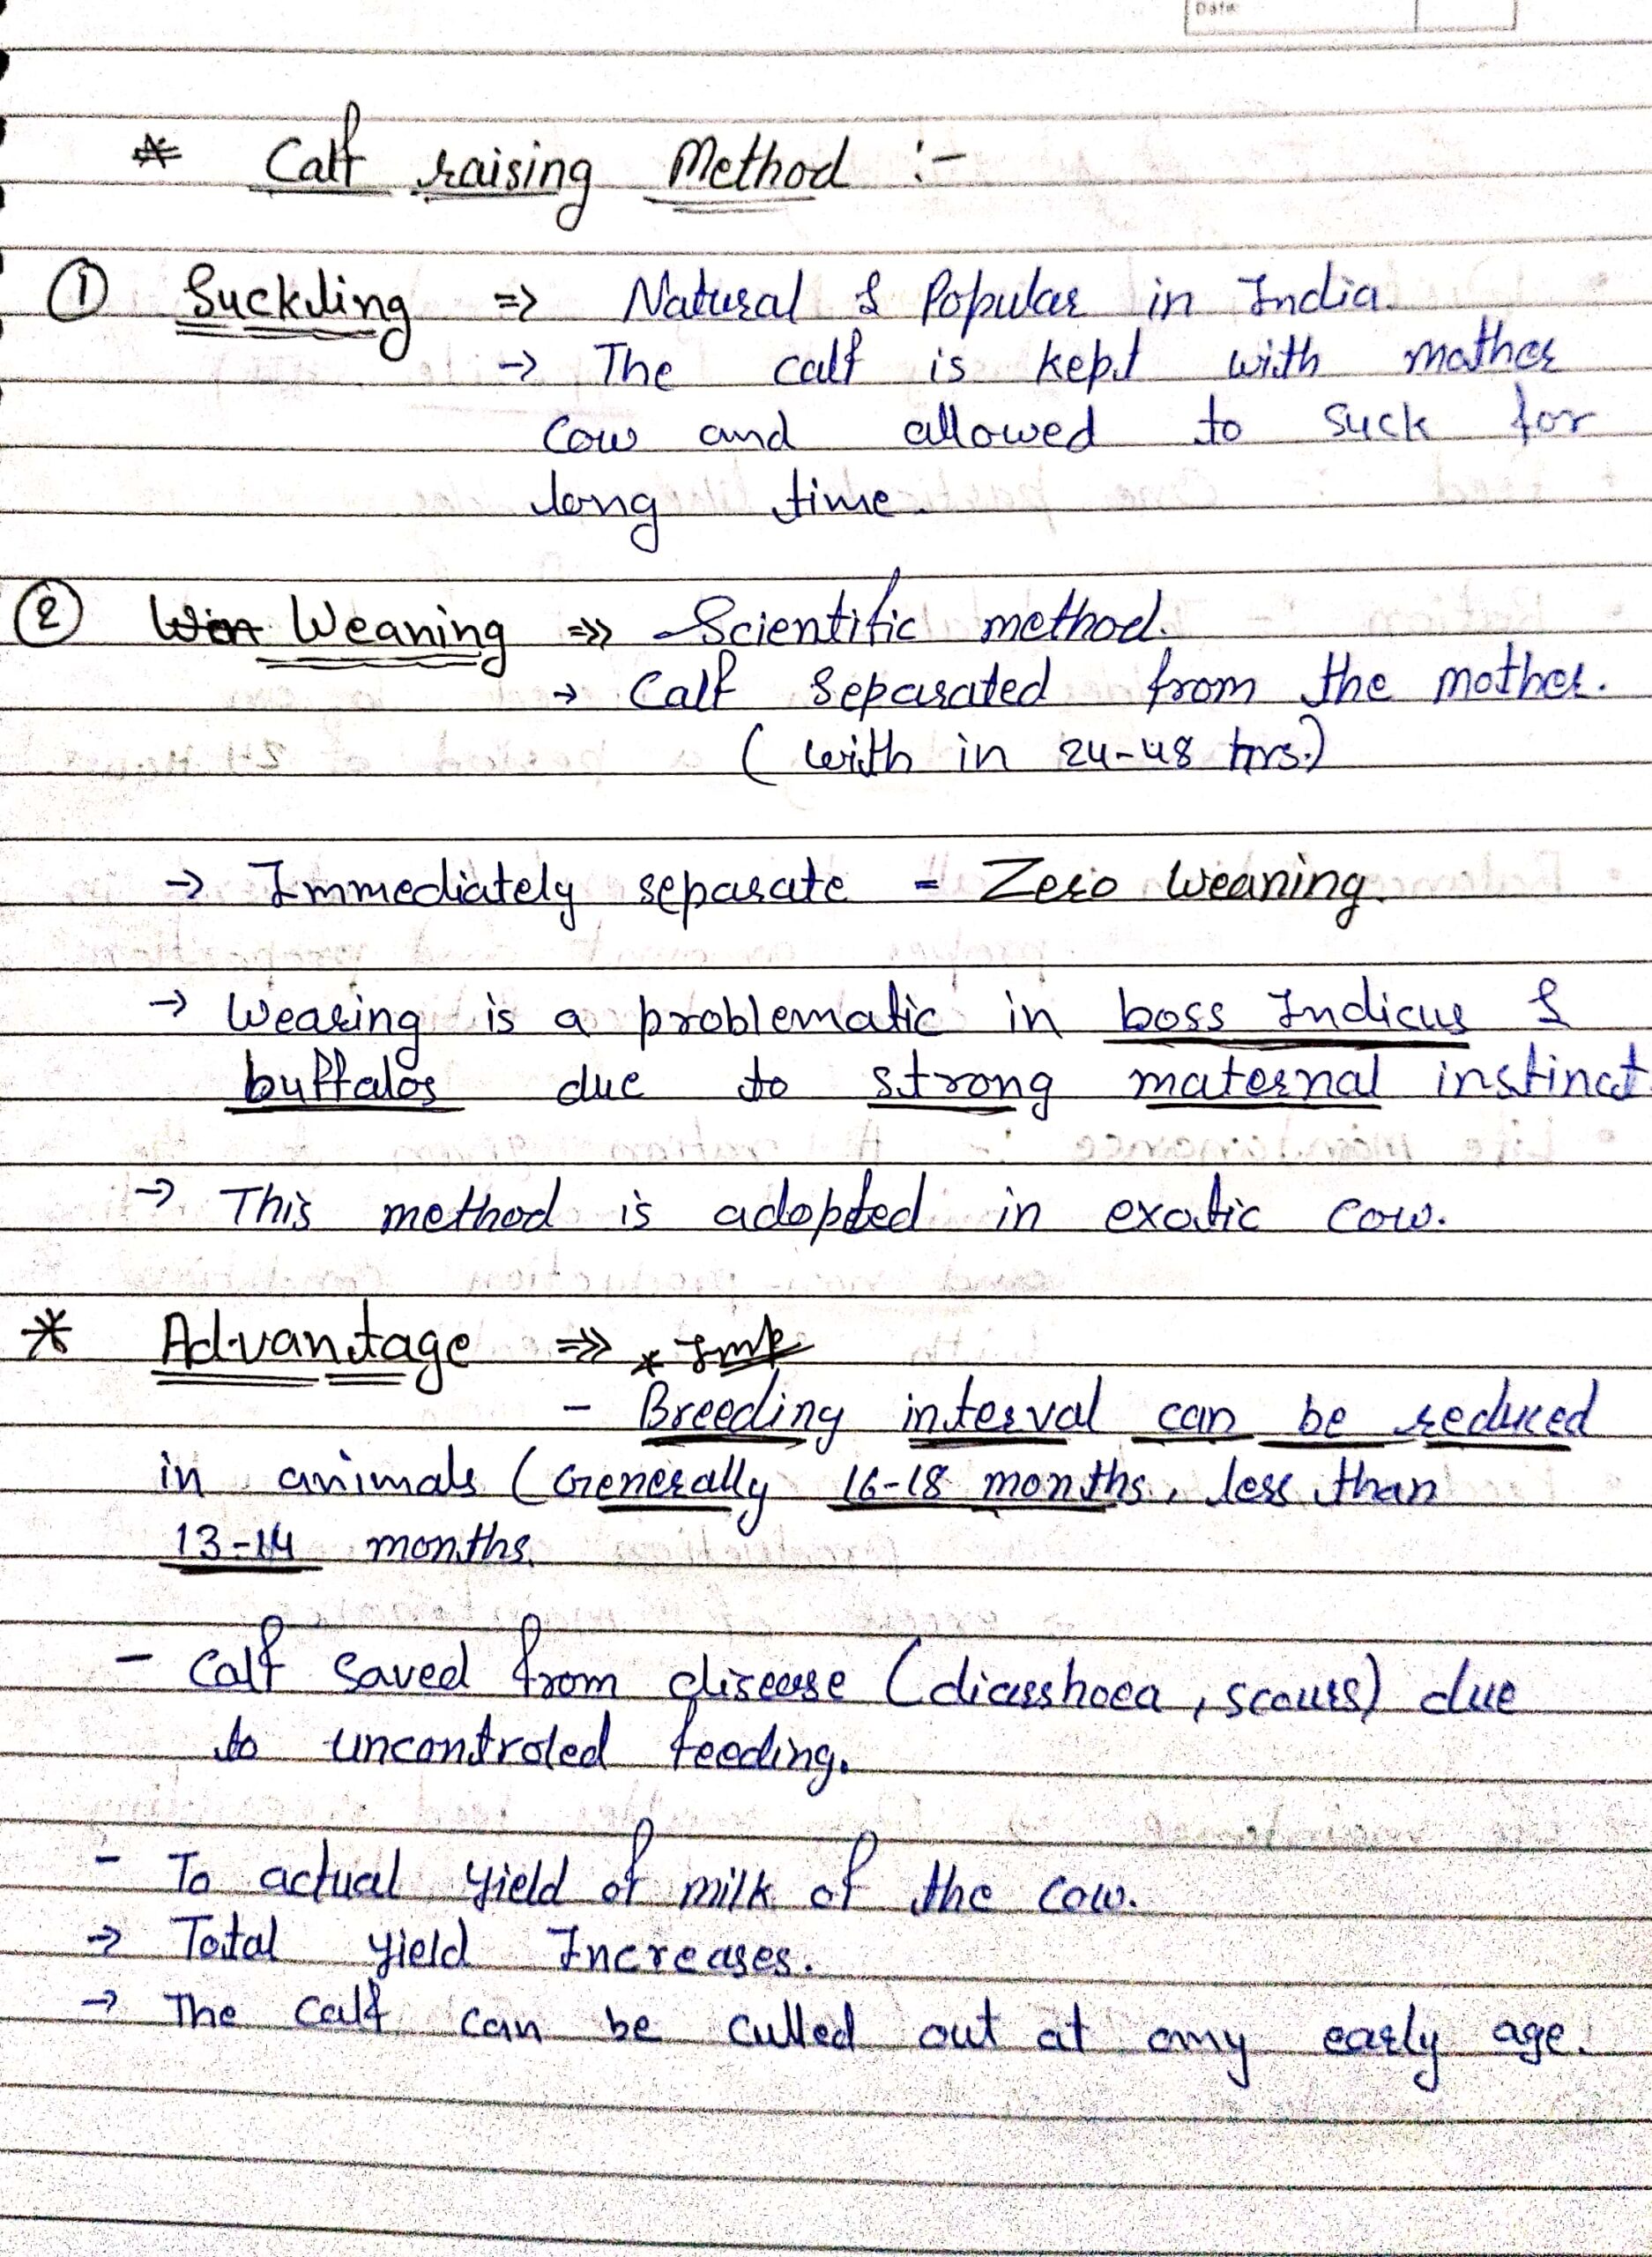 Date
* Calf raising Method :-
① Suckling => Natural & Popular in India.
→ The calf is kept with mother
cow and allowed to suck for
long time.
② Weaning =>> Scientific method.
→ Calf Separated from the mother.
( with in 24-48 hrs.)
→ Immediately separate = Zero Weaning.
→ Wearing is a problematic in boss Indicus &
buffalos due to strong maternal instinct
→ This method is adopted in exotic cow.
* Advantage =>> *
- Breeding interval can be reduced
in animals (Generally 16-18 months, less than
13-14 months.
- Calf Saved from disease (diarrhoea, scours) due
to uncontroled feeding.
- To actual yield of milk of the cow.
→ Total yield Increases.
→ The calf can be culled out at any early age.